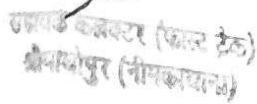 सहायक कलक्टर (फास्ट ट्रैक)
श्रीमाधोपुर (नीमकाथाना)